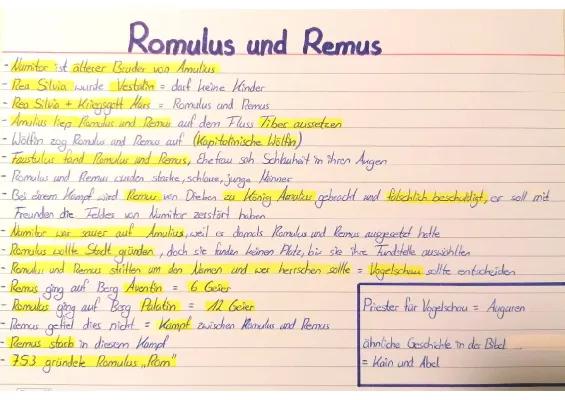 Romulus und Remus
- Numitor ist älterer Bruder von Amulius
- Rea Silvia wurde Vestalin = darf keine Kinder
- Rea Silvia + Kriegsgott Mars = Romulus und Remus
- Amulius liep Romulus und Remus auf dem Fluss Tiber aussetzen
- Wölfin zog Romulus und Remus auf (Kapitolinische Wölfin)
- Faustulus fand Romulus und Remus, Ehefrau sah Schlauheit in ihren Augen
- Romulus und Remus wurden starke, schlaue, junge Männer
- Bei einem Kampf wird Remus von Dieben zu König Amulius gebracht und fälschlich beschuldigt, er soll mit
Freunden die Felder von Numitor zerstört haben
- Numitor war sauer auf Amulius, weil er damals Romulus und Remus ausgesetzt hatte
- Romulus wollte Stadt gründen, doch sie fanden keinen Platz, bis sie ihre Fundstelle auswählten
- Romulus und Remus stritten um den Namen und wer herrschen sollte = Vogelschau sollte entscheiden
- Remus ging auf Berg Aventin = 6 Geier
- Romulus ging auf Berg Palatin = 12 Geier
- Remus gefiel dies nicht = Kampf zwischen Romulus und Remus
- Remus starb in diesem Kampf
- 753 gründete Romulus „Rom"
Priester für Vogelschau = Auguren
ähnliche Geschichte in der Bibel
= Kain und Abel